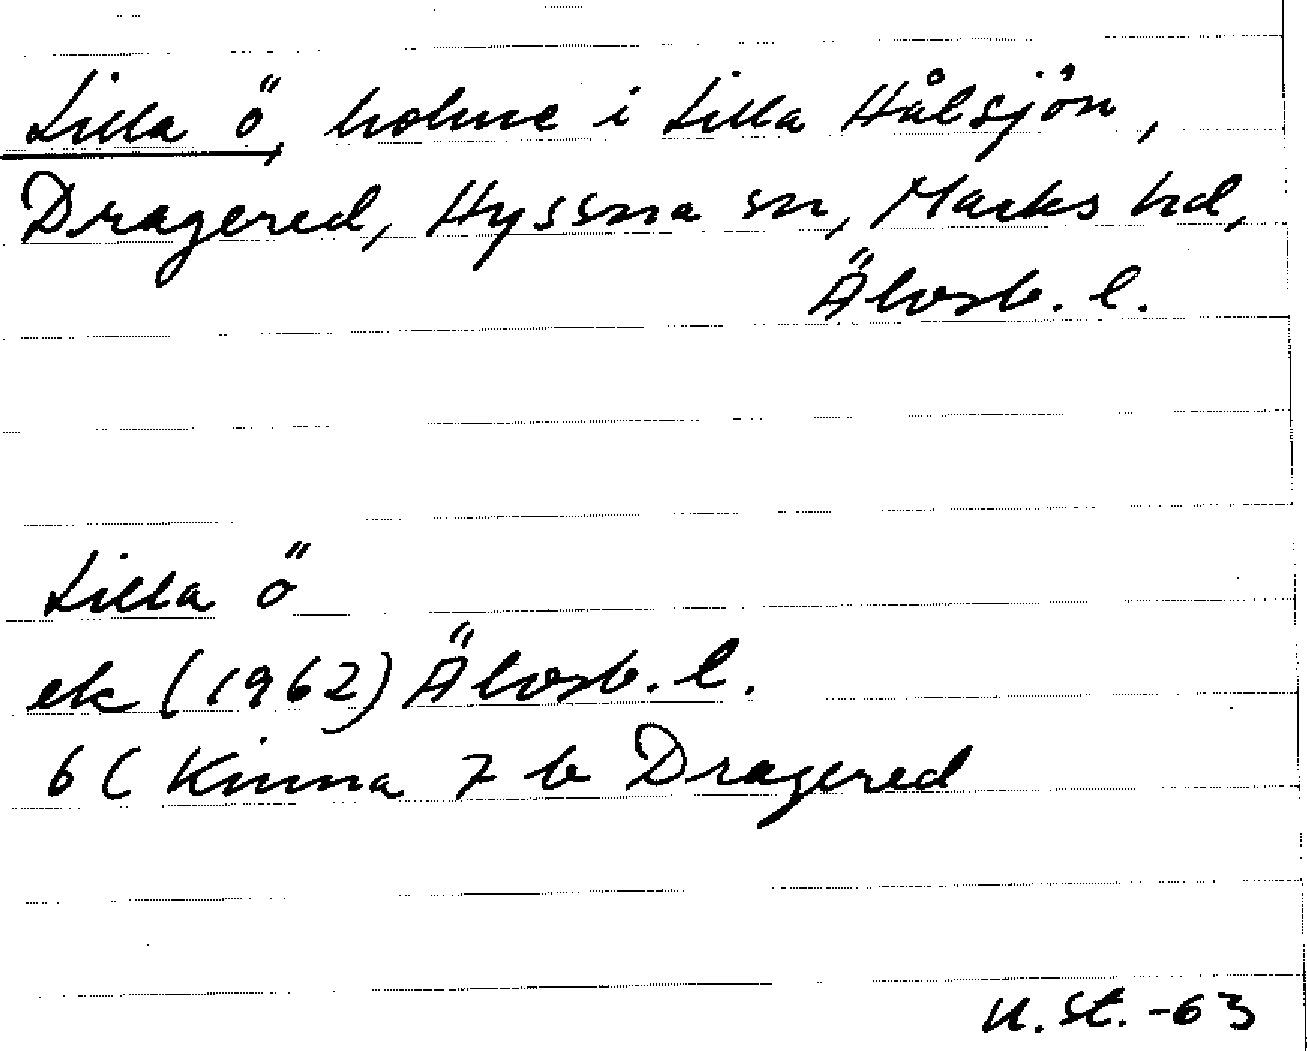 Lilla ö, holme i Lilla Hålsjön,
Dragered, Hyssna sn, Marks hd,
Älvsb. l.
Lilla ö
ek (1962) Älvsb. l.
6 C Kinna 7 b Dragered
U. St. -63